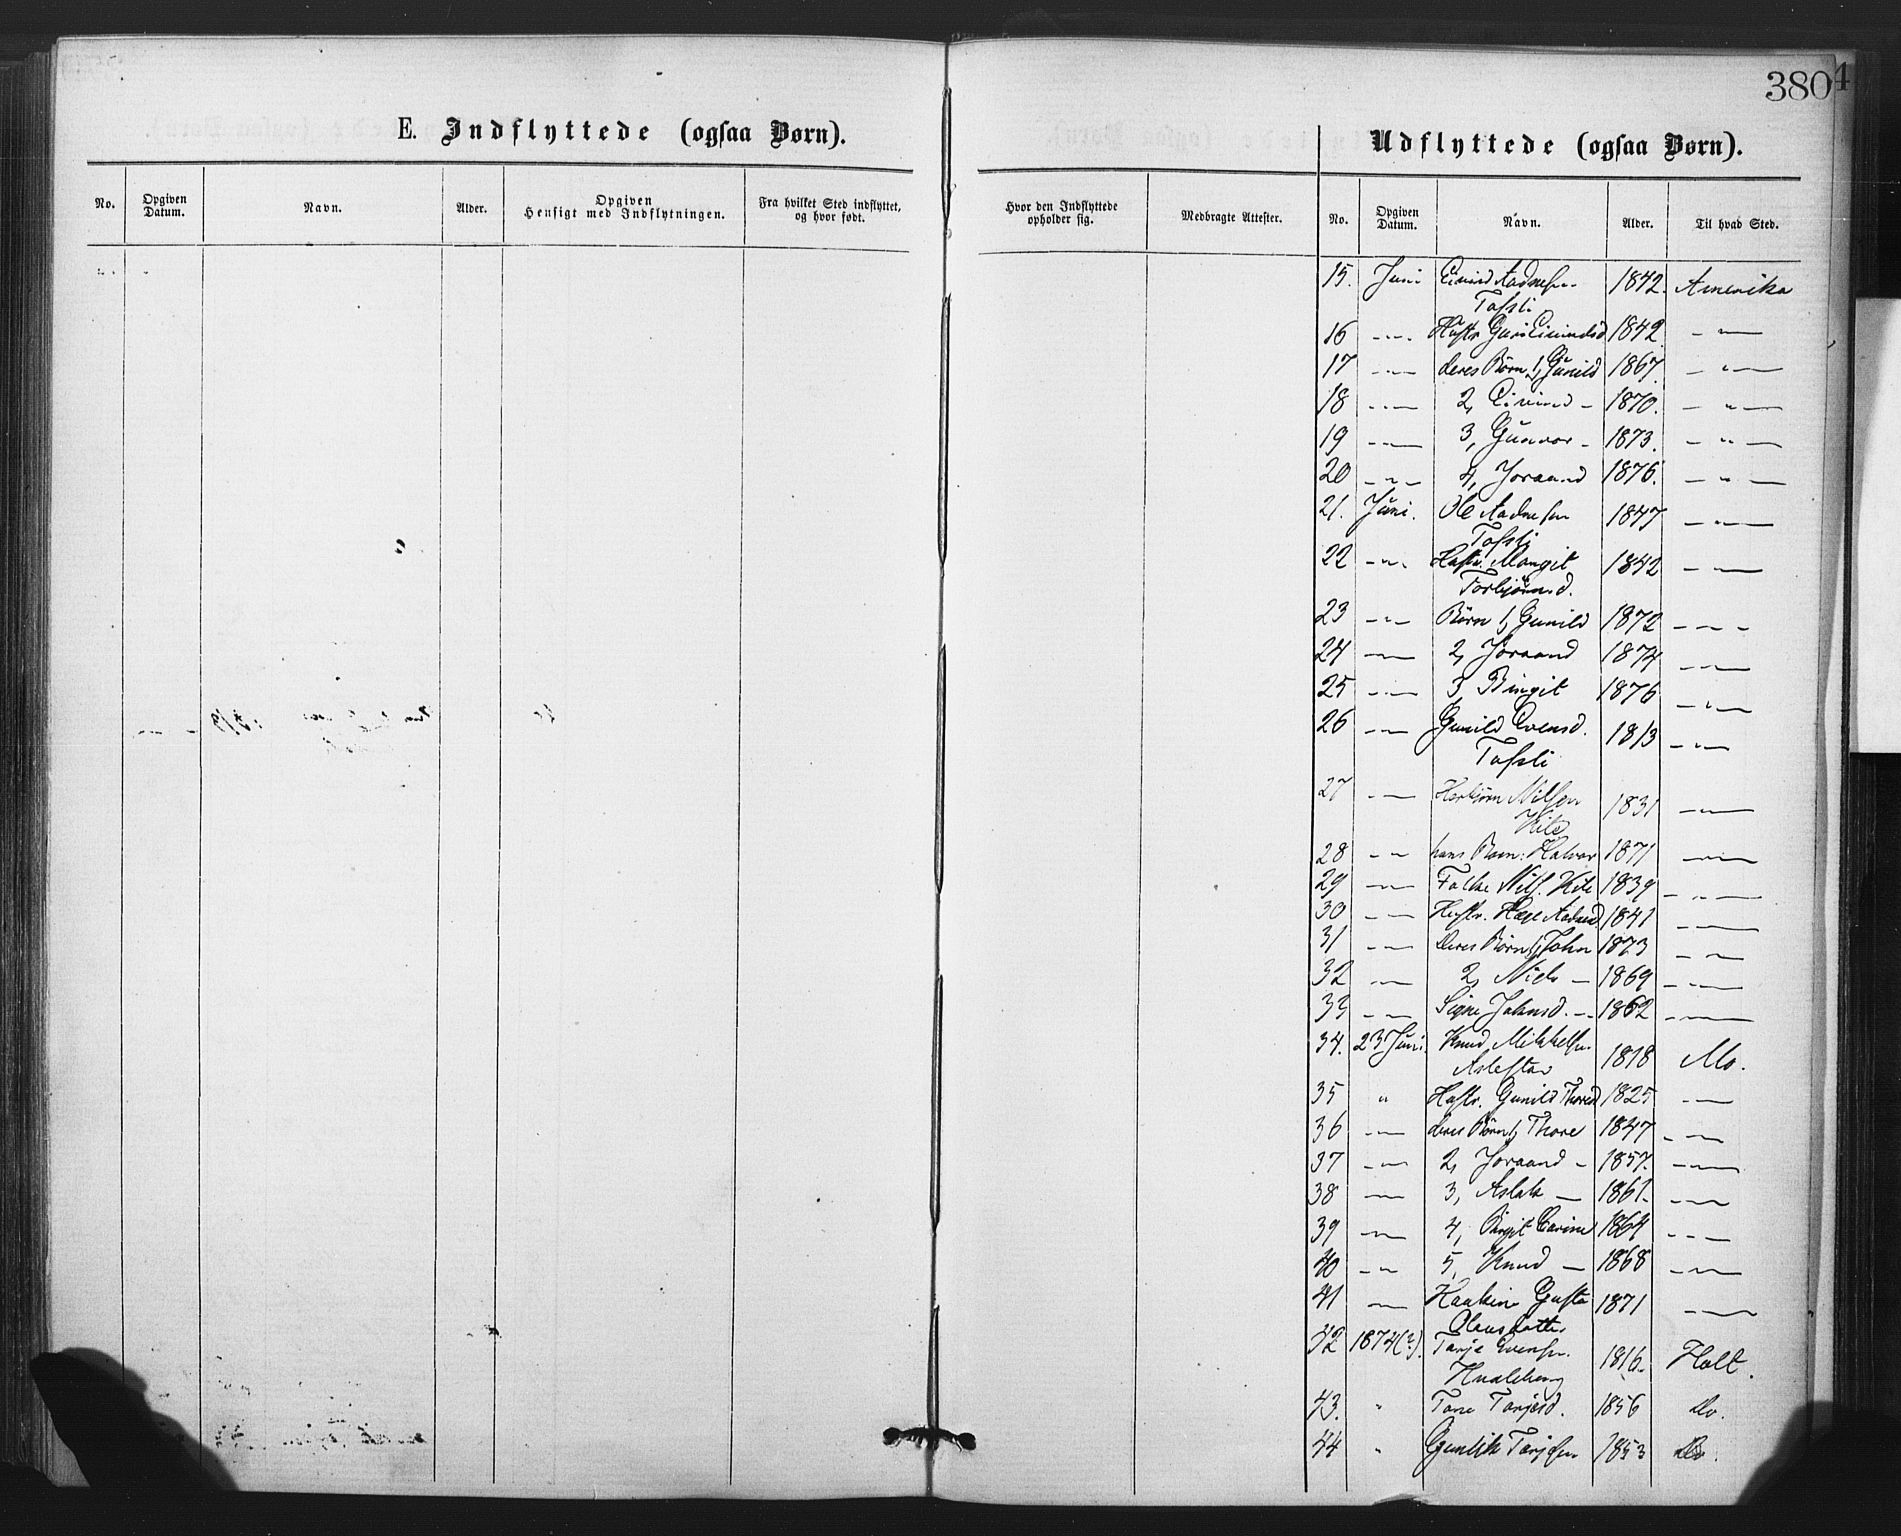 3804
E. Indflyttede (ogsaa Børn).
Udflyttede (ogsaa Børn).
No. Opgiven Datum. Navn. Alder. Opgiven Hensigt med Indflytningen. Fra hvilket Sted indflyttet, og hvor født. Hvor den Indflyttede opholder sig. Medbragte Attester. No. Opgiven Datum. Navn. Alder. Til hvad Sted.
15. Juni Eivind Aadnesen 1842. Amerika
Tofsli
16 -"- Hustr. Guro Eivindsd 1842 - " -
17 -"- deres Børn 1, Gunild 1867. - " -
18 -"- 2, Eivind - 1870. - " -
19 -"- 3, Gunvor - 1873. - " -
20 -"- 4, Joraand 1876. - " -
21. Juni. Ole Aadnesen 1847 - " -
Tofsli
22 -"- Hustr. Margit 1842 - " -
Torbjørnsd.
23 -"- Børn 1, Gunild 1872 - " -
24 -"- 2, Joraand 1874 - " -
25 -"- 3, Birgit 1876 - " -
26 -"- Gunild Evensd. 1813 - " -
Tofsli
27 -"- Herbjørn Nilsen 1831 - " -
Kile
28 -"- hans Barn: Halvor 1871 - " -
29 -"- Folke Nils. Kile 1839 - " -
30 -"- Hustr. Hæge Aadnesd 1841 - " -
31 -"- deres Børn 1, John 1873 - " -
32 -"- 2, Niels - 1869 - " -
33 -"- Signe Johnsd. - 1862 - " -
34. 23 Juni. Knud Mikkelsen 1818 Mo.
Aslestad
35 " Hustr. Gunild Thoresd 1825 - " -
36 -"- deres Børn 1, Thore 1847 - " -
37 -"- 2, Joraand - 1857. - " -
38 -"- 3, Aslak - 1861. - " -
39 -"- 4, Birgit Carine 1864 - " -
40 -"- 5, Knud - 1868 - " -
41 -"- Haakine Gusta 1871 - " -
Olausdatter
42 1874(?). Tarje Evensen. 1816. Holt.
43. " Tone Tarjesd. 1856 Do.
44 " Gunlik Tarjesen 1853 Do.